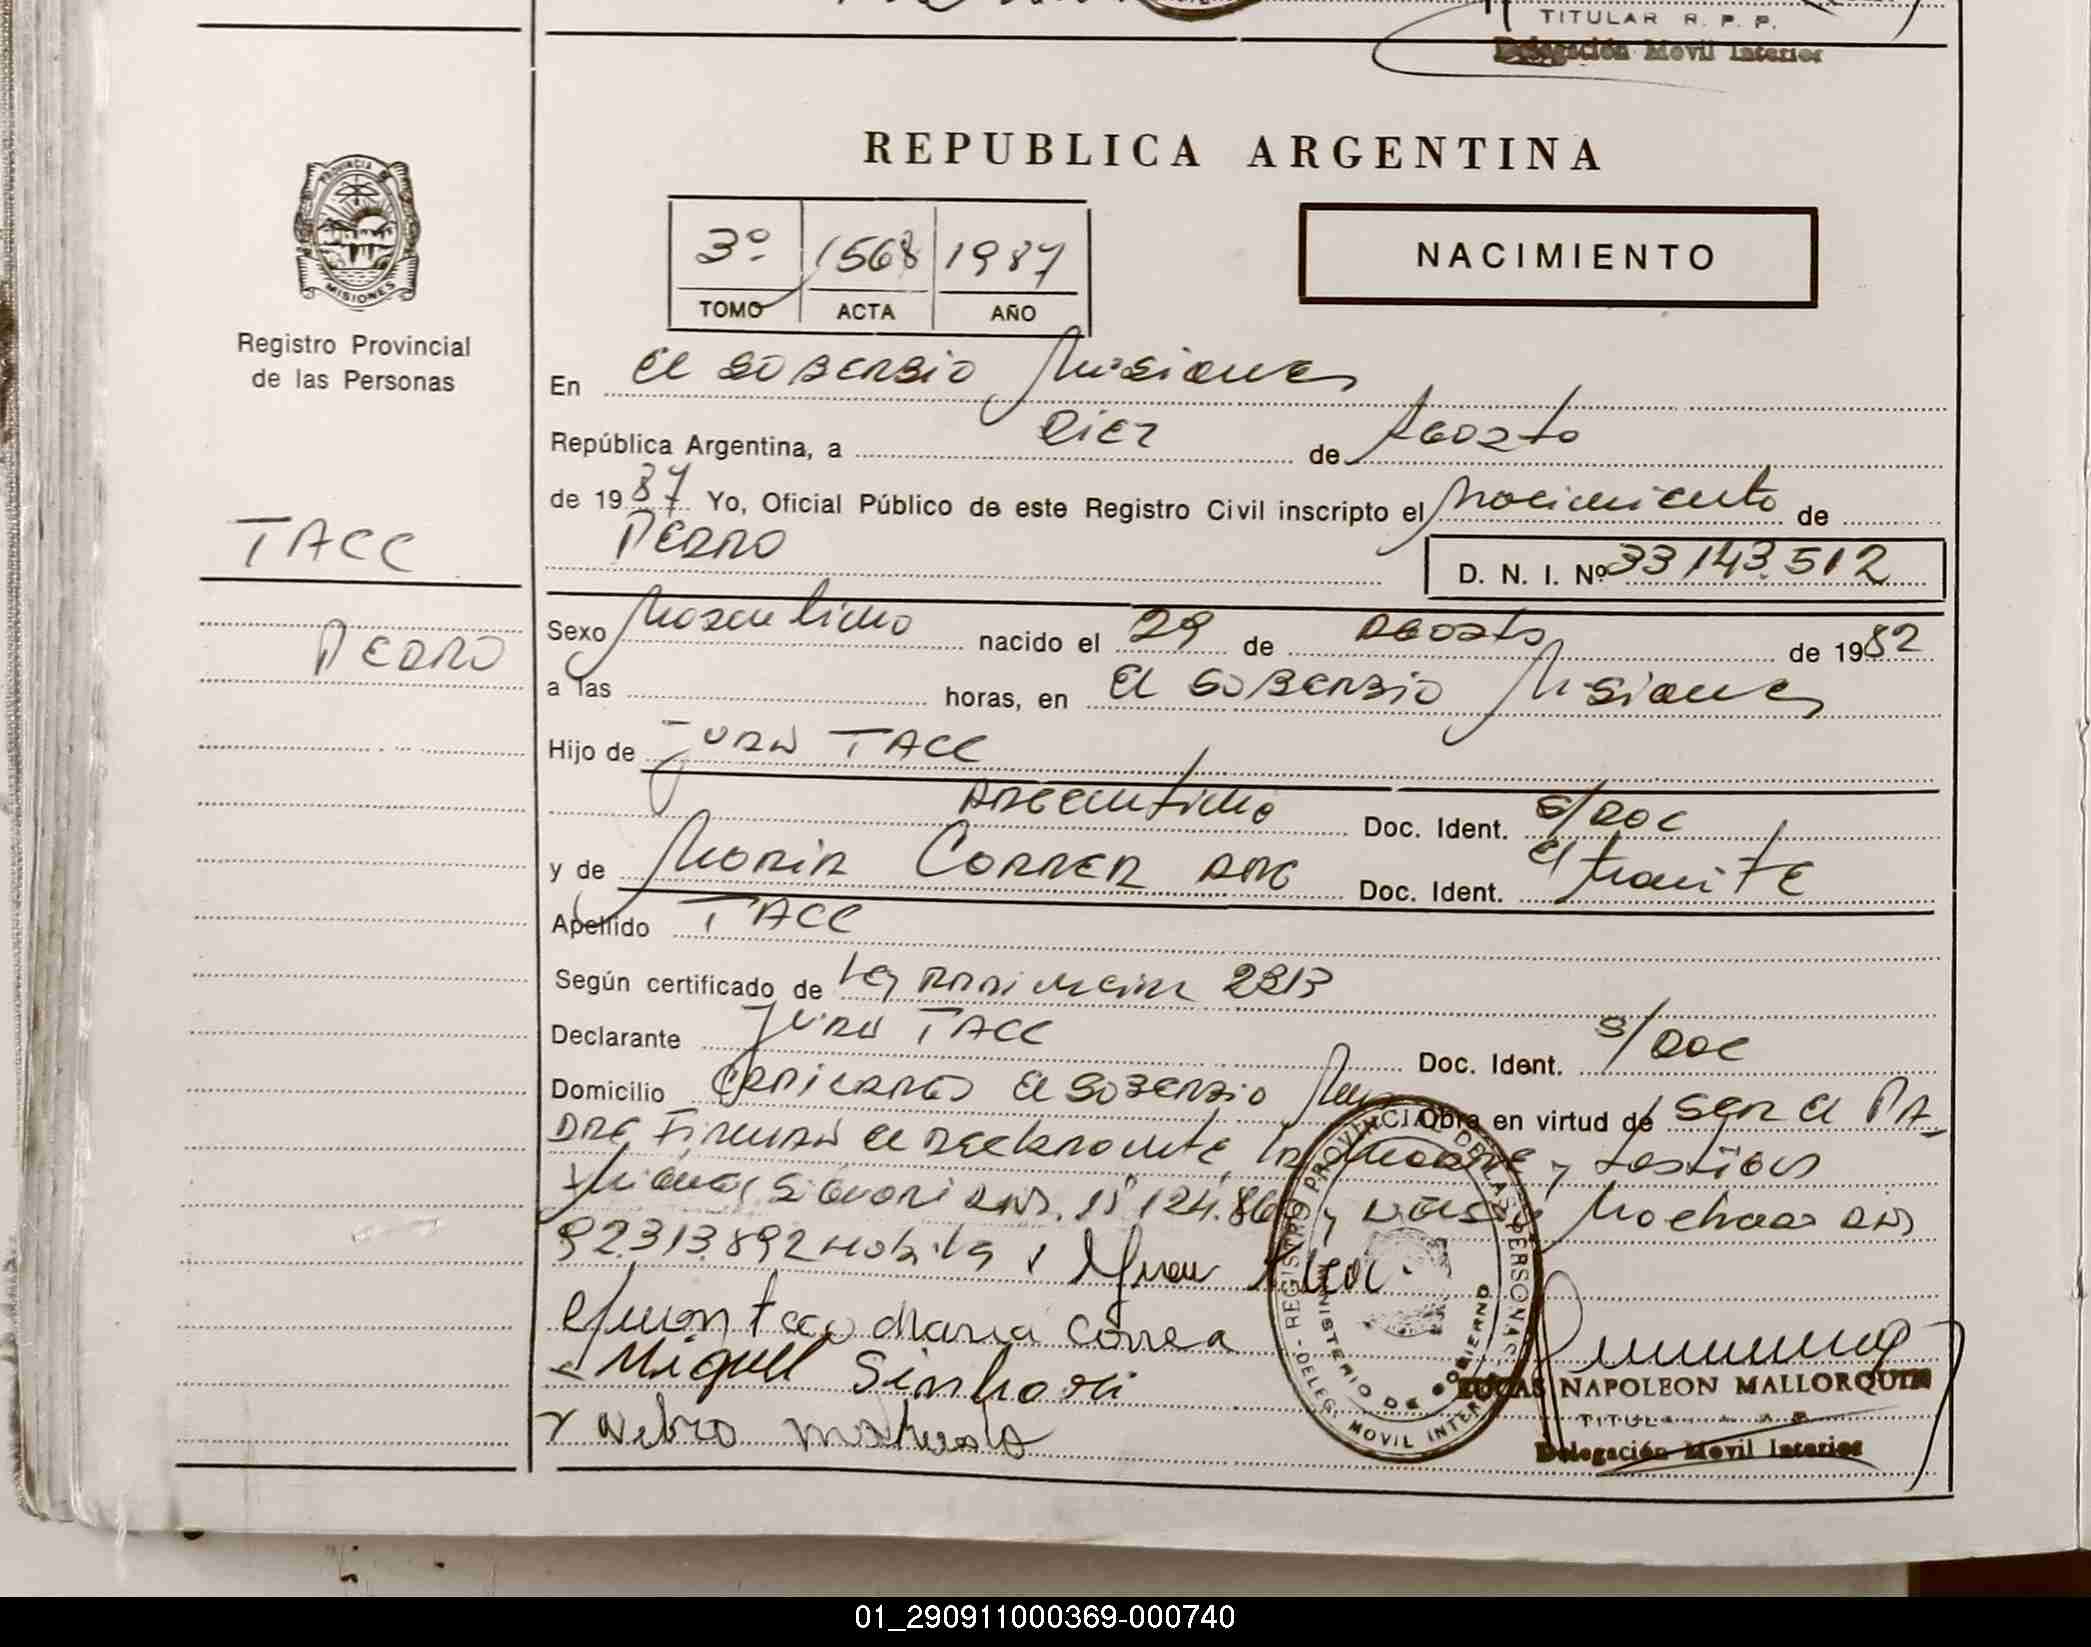 TITULAR R. P. P.
Delegación Movil Interior
REPUBLICA ARGENTINA
PROVINCIA DE
MISIONES
3º 1568 1987
TOMO ACTA AÑO
NACIMIENTO
Registro Provincial
de las Personas
En El Soberbio Misiones
República Argentina, a Diez de Agosto
de 1987 Yo, Oficial Público de este Registro Civil inscripto el Nacimiento de
TACC
PEDRO
D. N. I. Nº 33143.512
PEDRO
Sexo Masculino nacido el 29 de Agosto de 1982
a las horas, en El Soberbio Misiones
Hijo de Juan TACC
Argentino Doc. Ident. S/Doc
y de Maria Correa Arg Doc. Ident. E/tramite
Apellido TACC
Según certificado de Ley Provincial 2313
Declarante Juan TACC Doc. Ident. S/Doc
Domicilio El Soberbio Obra en virtud de ser el PA-
DRE Firman el Declarante, la Madre y testigos
92.313.892
Maria Correa
Miguel
REGISTRO PROVINCIAL DE LAS PERSONAS
MINISTERIO DE GOBIERNO
DELEG. MOVIL INTERIOR
LUCAS NAPOLEON MALLORQUIN
Delegación Movil Interior
01_290911000369-000740